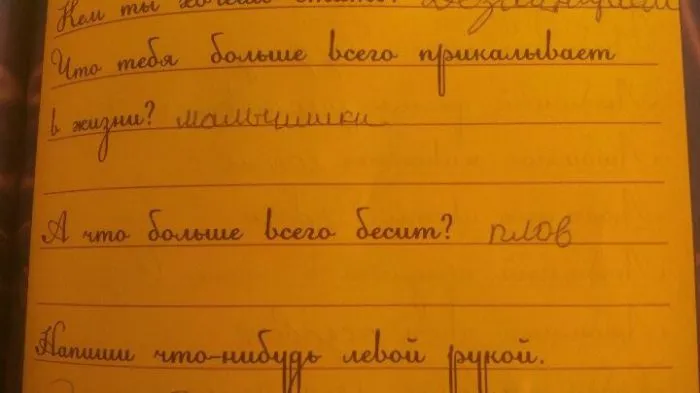 Кем ты хочешь стать? Дезайнером
Что тебя больше всего прикалывает
в жизни? мальчишки
А что больше всего бесит? плов
Напиши что-нибудь левой рукой.